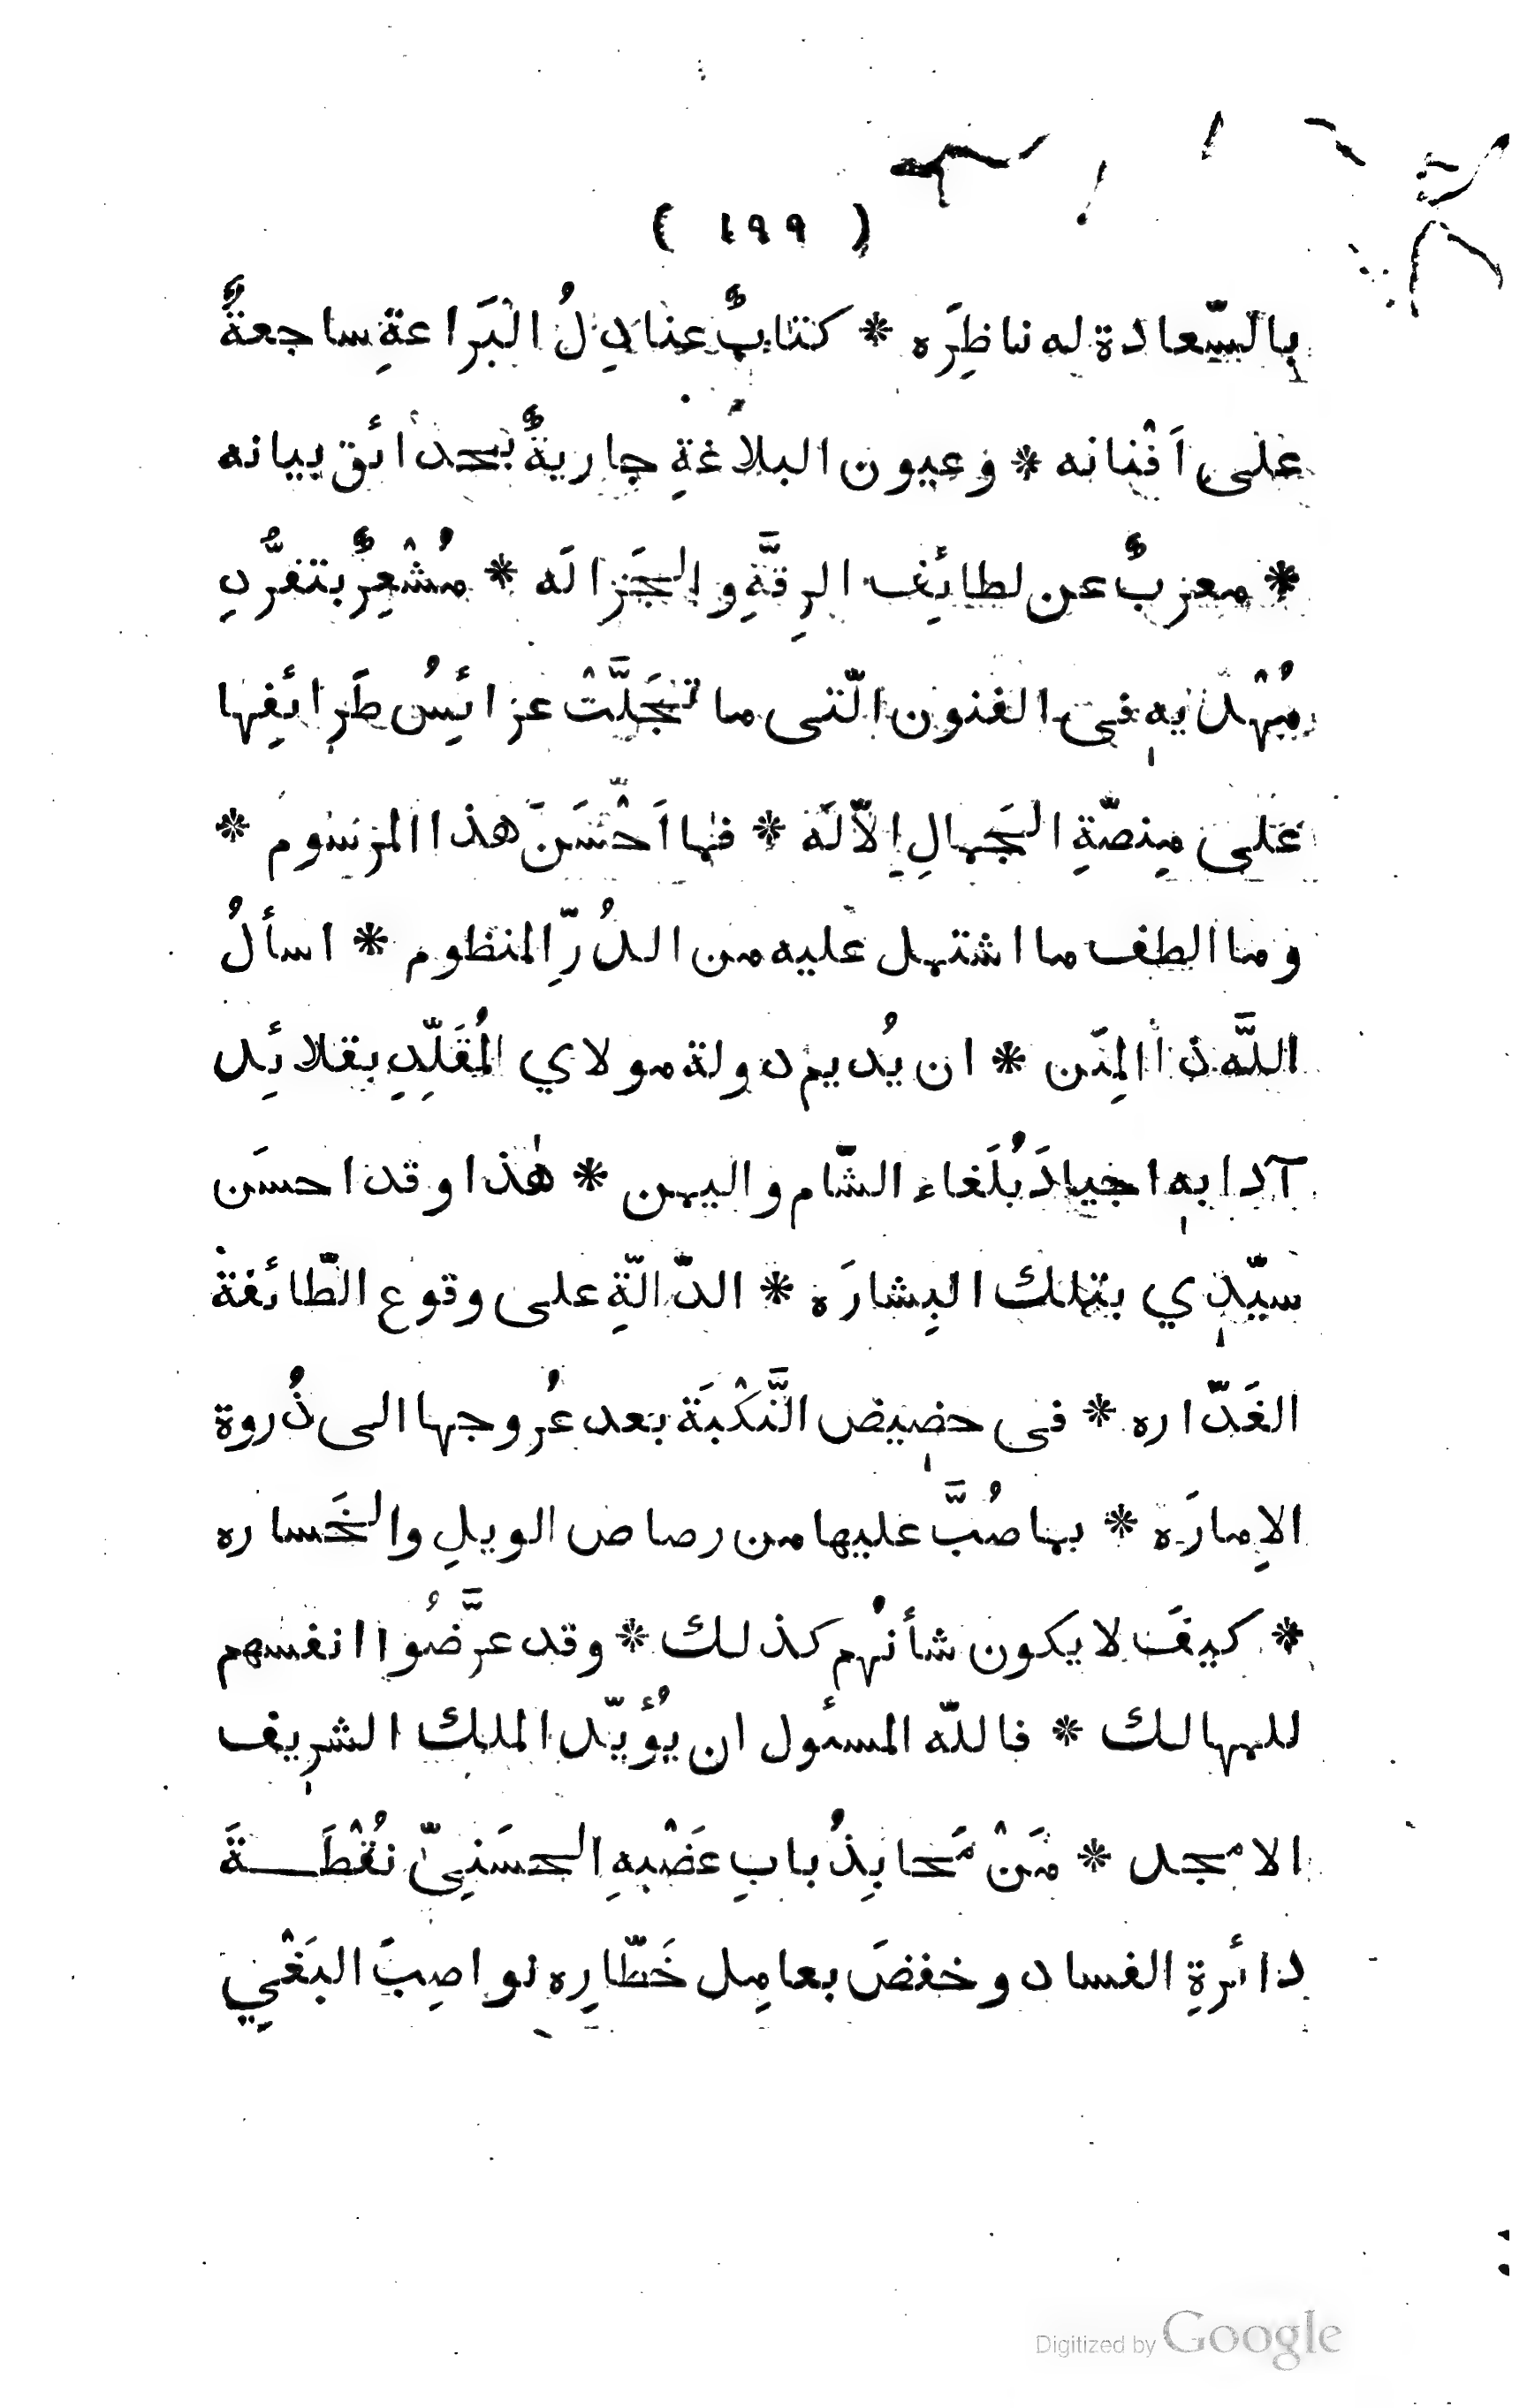 ( ١٩٩ )
بالسّعادة له ناظِرَه * كتابٌ عنادِلُ البَراعةِ ساجعةٌ
على اَفْنانه * وعيون البلاغةِ جاريةٌ بحدائق بيانه
* معربٌ عن لطائِف الرِقَّةِ والجَزالَه * مُشْعِرٌ بتفرُّدِ
مُهْدِيهِ فى الفنون الّتى ما تجَلَّتْ عرائِسُ طَرائِفِها
على مِنصّةِ الجَمالِ اِلّا لَه * فما اَحْسَنَ هذا المرسوم *
وما الطف ما اشتمل عليه من الدُرِّ المنظوم * اسألُ
اللَّه ذا المِنَن * ان يُديم دولة مولاي المُقَلِّدِ بقلائِد
آدابهِ اجيادَ بُلَغاء الشّام واليمن * هٰذا وقد احسَن
سيّدي بتلك البِشارَه * الدّالّةِ على وقوع الطّائفة
الغَدّاره * فى حضيض النَّكْبَة بعد عُروجها الى ذُروة
الاِمارَة * بما صُبَّ عليها من رصاص الويلِ والخَساره
* كيفَ لا يكون شأنُهم كذلك * وقد عرَّضُوا انفسهم
للمهالك * فاللّه المسئول ان يُؤيّد الملك الشريف
الامجد * مَنْ مَحا بِذُبابِ عَضْبهِ الحسَنِىّ نُقْطَـــةَ
دائرةِ الفساد وخفضَ بعامِل خَطّارِه نواصِبَ البَغْيِ
Digitized by Google